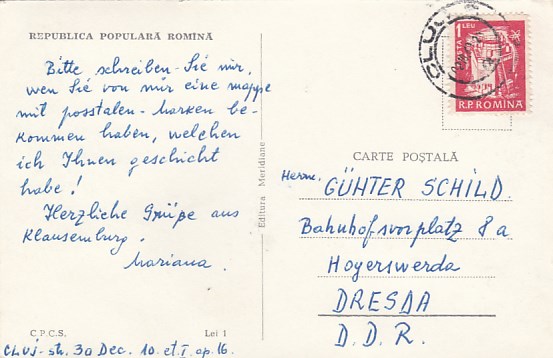 REPUBLICA POPULARĂ ROMÎNĂ
Bitte schreiben-Sie mir,
wen Sie von mir eine mappe
mit posstalen-Marken be-
kommen haben, welchen
ich Ihnen geschicht
habe!
Herzliche Grüße aus
Klausemburg.
Mariana.
C.P.C.S.
Lei 1
CLUJ-str. 30 Dec. 10. et.I, ap.16.
Editura Meridiane
CLUJ
POSTA
1 LEU
R.P.ROMINA
CARTE POȘTALĂ
Herrn. GÜHTER SCHILD.
Bahnhofsvorplatz 8a
Hoyerswerda
DRESDA
D.D.R.